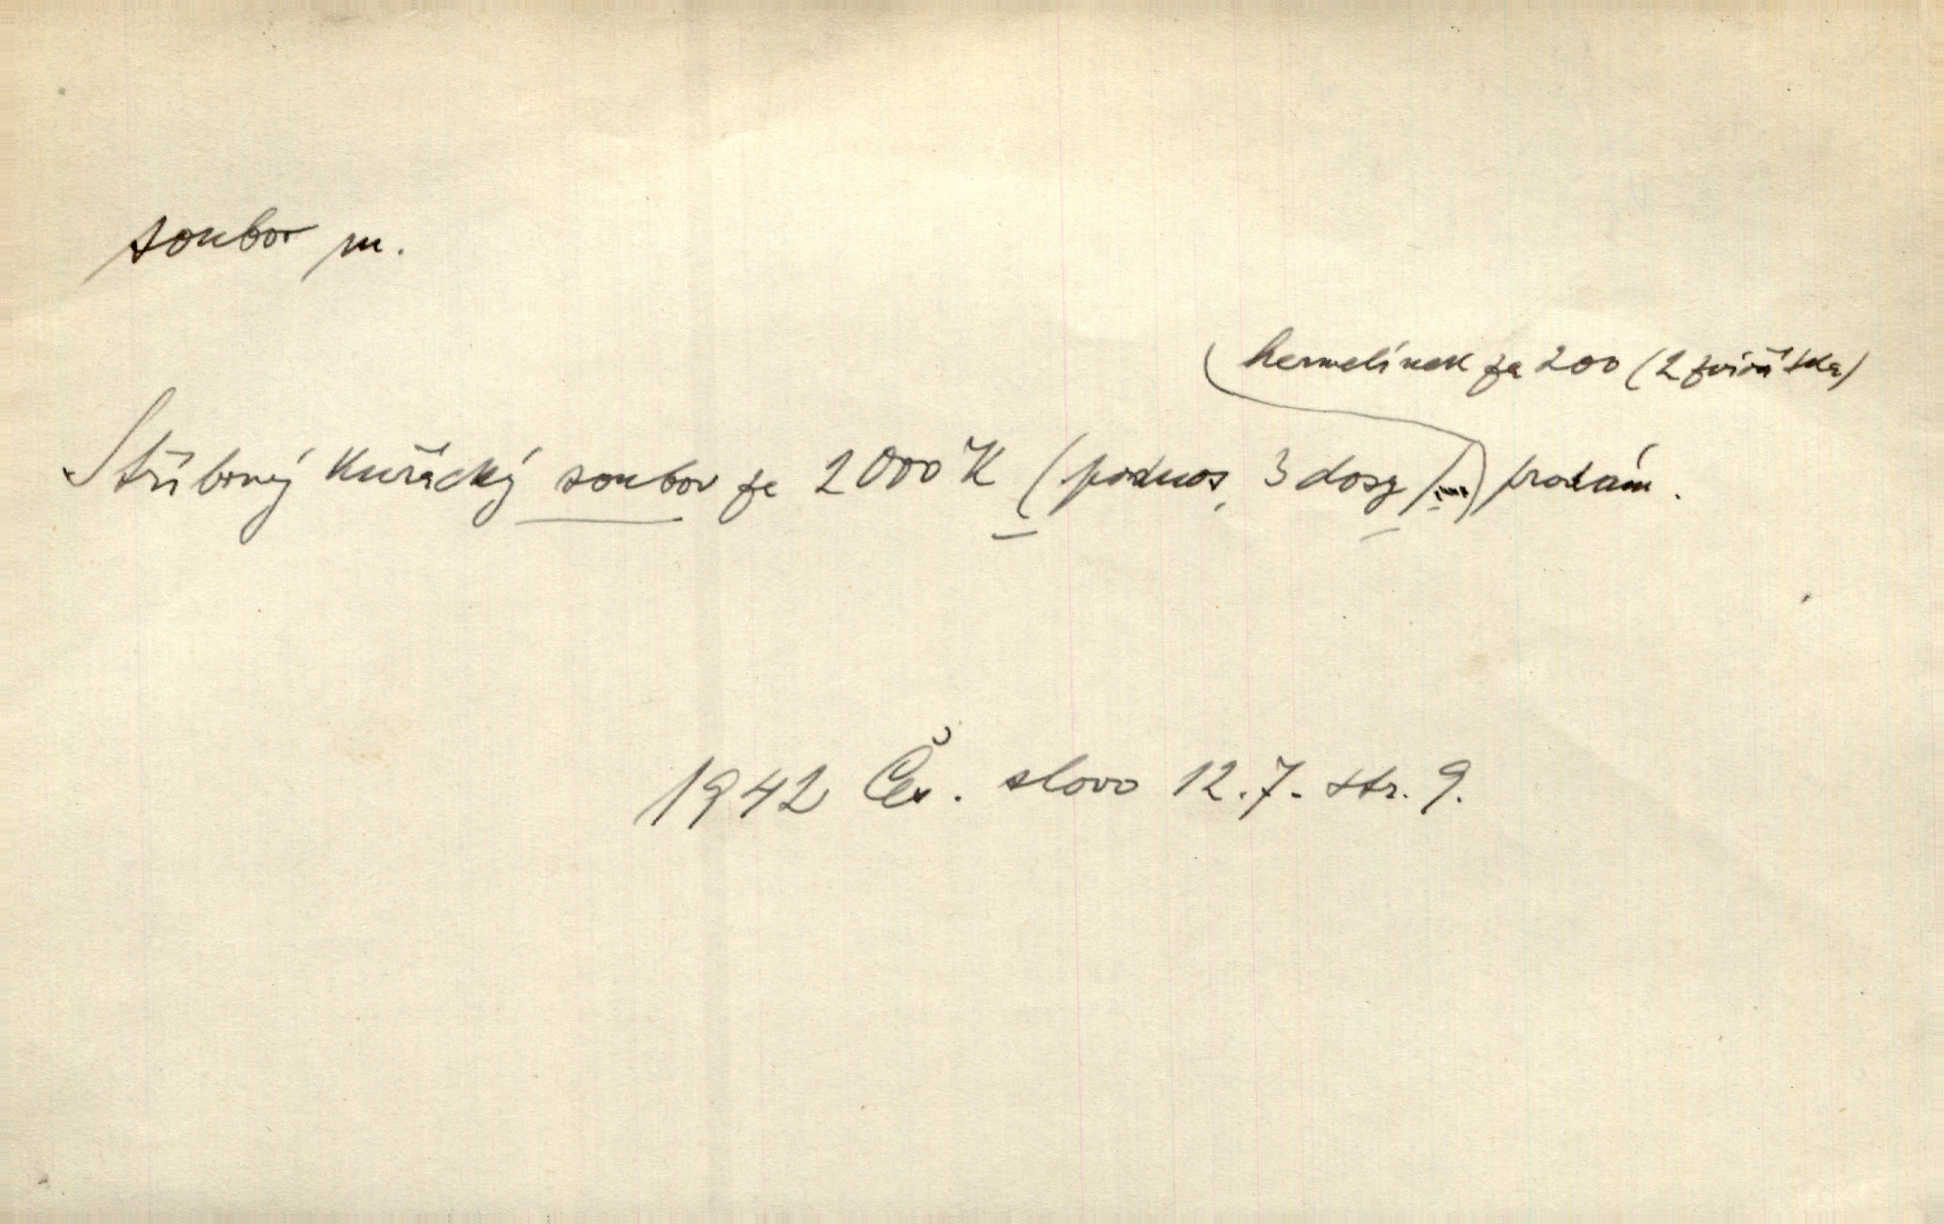 soubor m.
hermelínek za 200 (2 zvířátka)
Stříbrný kuřácký soubor za 2000 K (podnos, 3 dosy) prodám.
1942 Čes. slovo 12.7. str. 9.